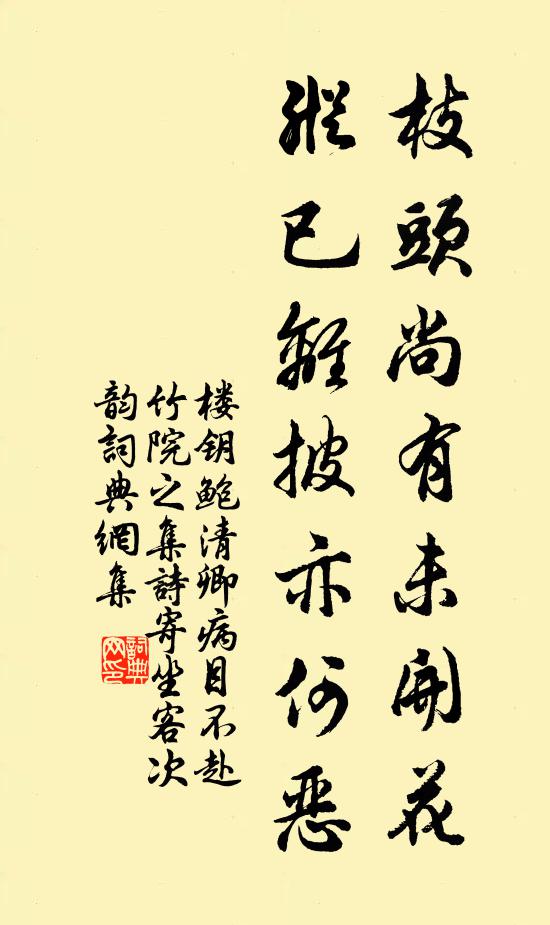 枝頭尚有未開花
縱已離披亦何惡
楼钥鲍清卿病目不赴
竹院之集詩寄坐客次
韵詞典網集
詞典网印